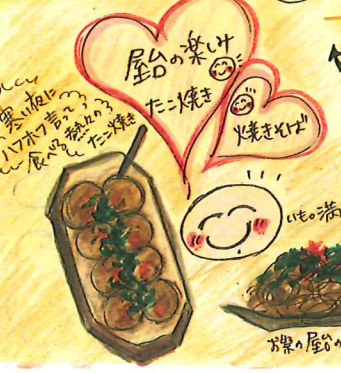 屋台の楽しみ
たこ焼き
焼きそば
寒い夜に
ハフホフ言って
食べる
熱々の
たこ焼き
いも。満
お祭の屋台の